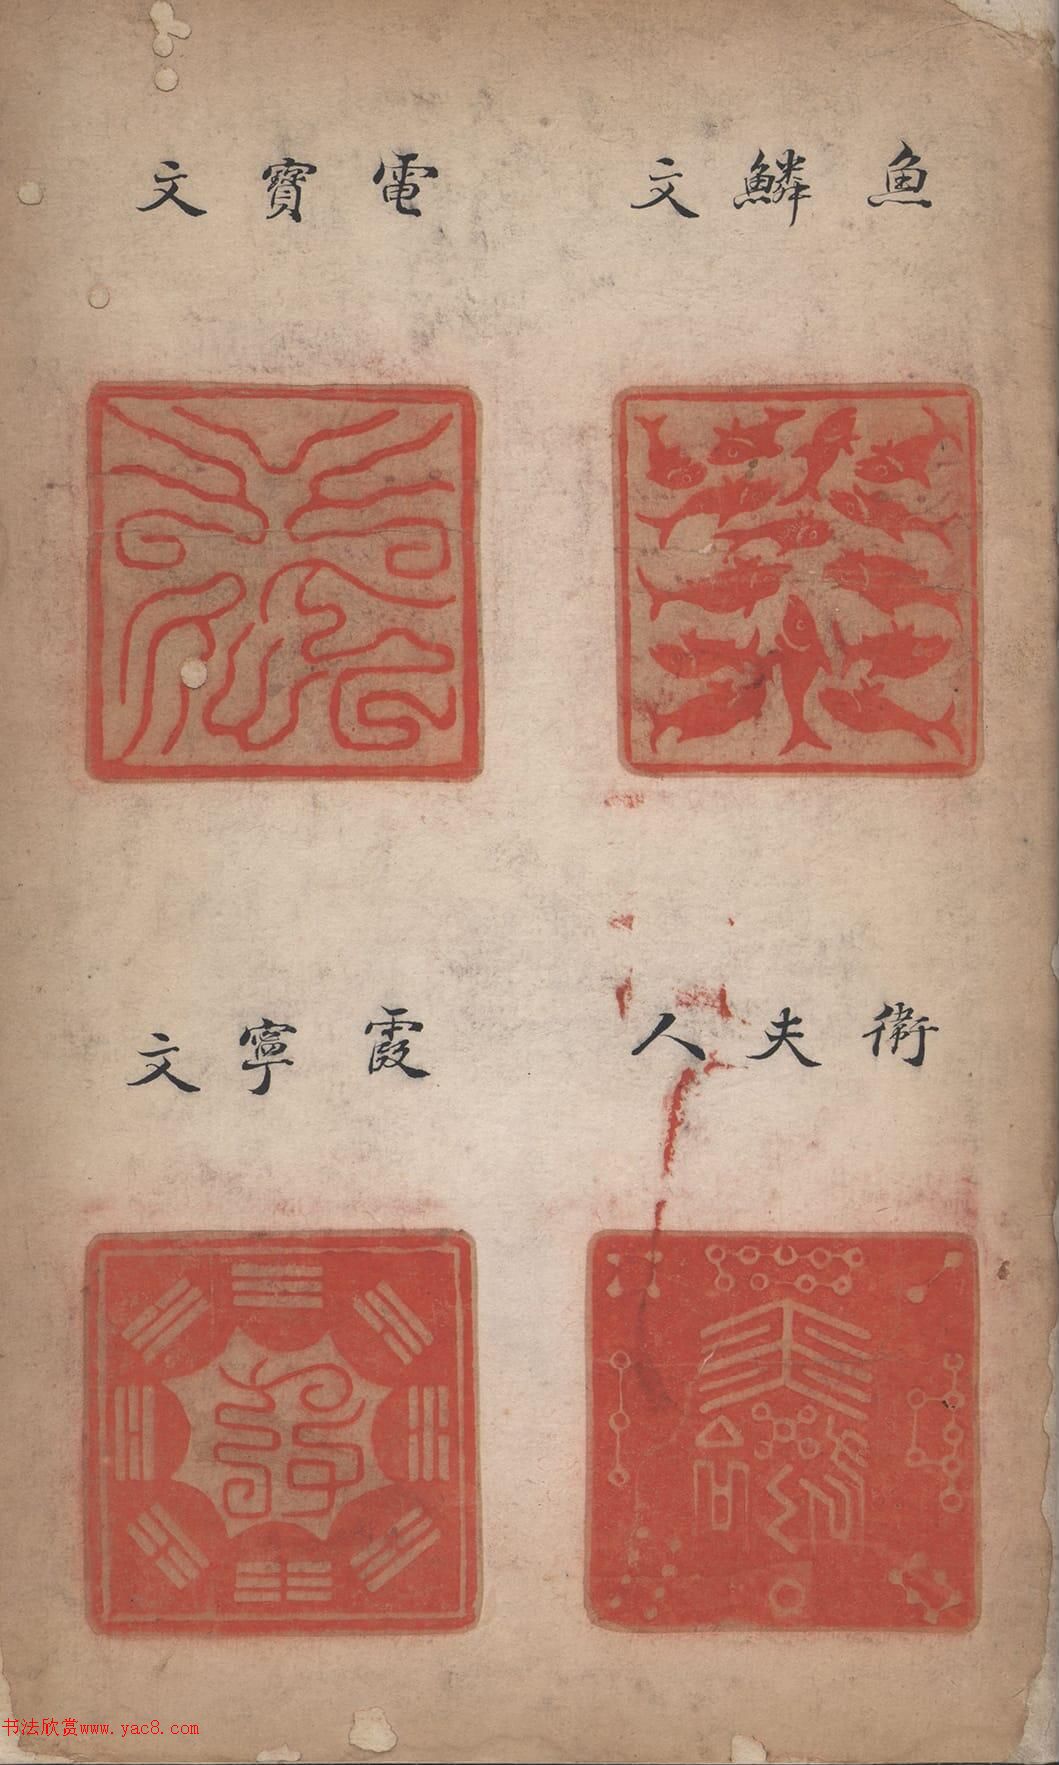 魚鱗文
電寶文
衛夫人
霞寧文
书法欣赏www.yac8.com